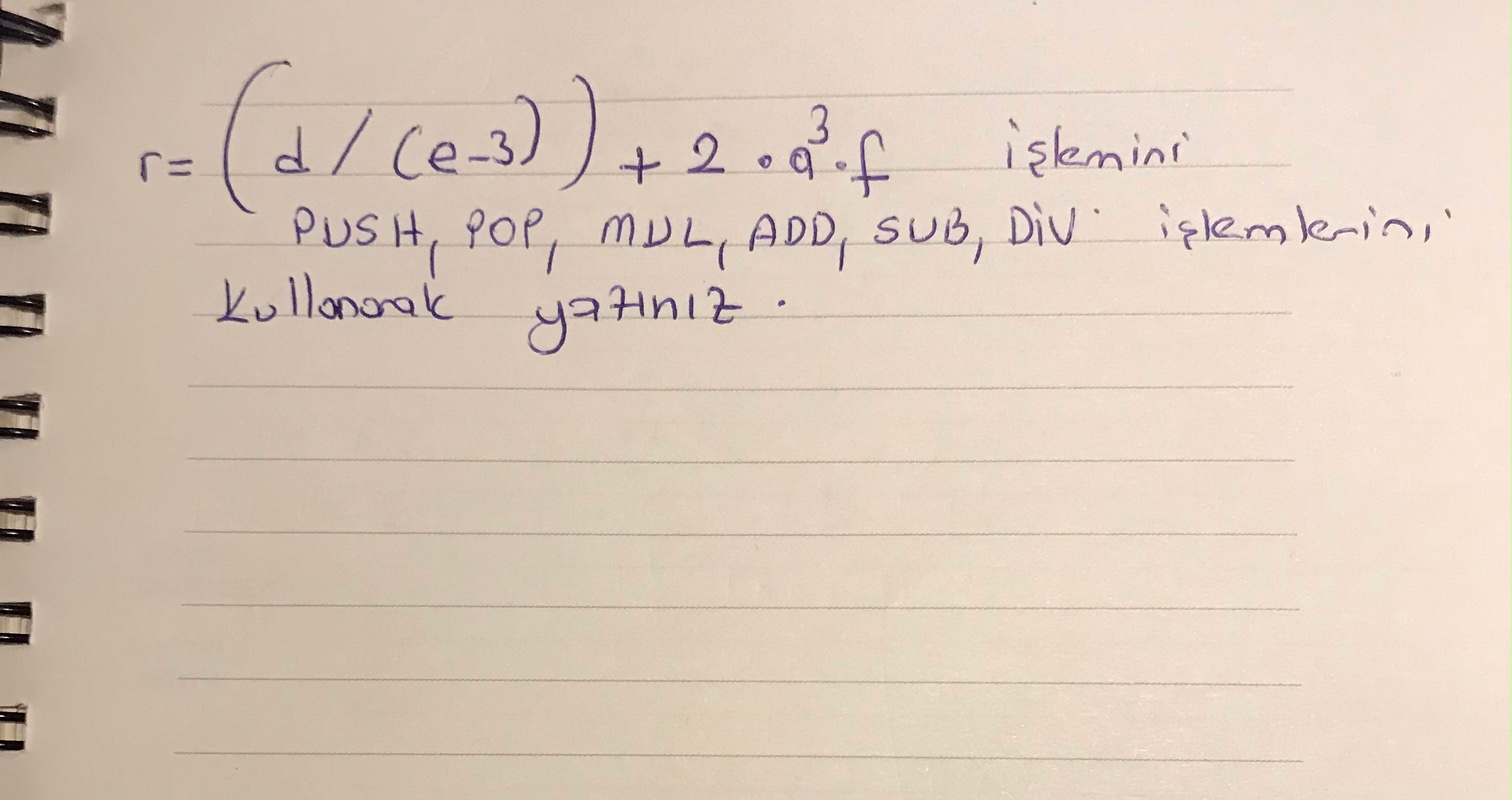 r= (d / (e-3)) + 2 . a³ . f işlemini
PUSH, POP, MUL, ADD, SUB, DİV işlemlerini
kullanarak yazınız.